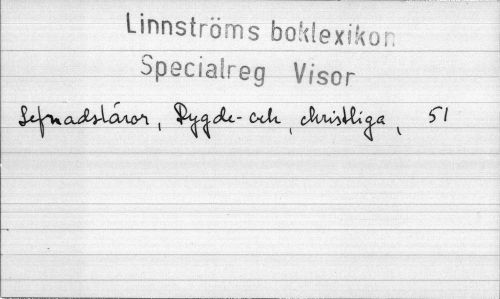 Linnströms boklexikon
Specialreg Visor
Lefnadslåror, Dygde- och, christliga, 51